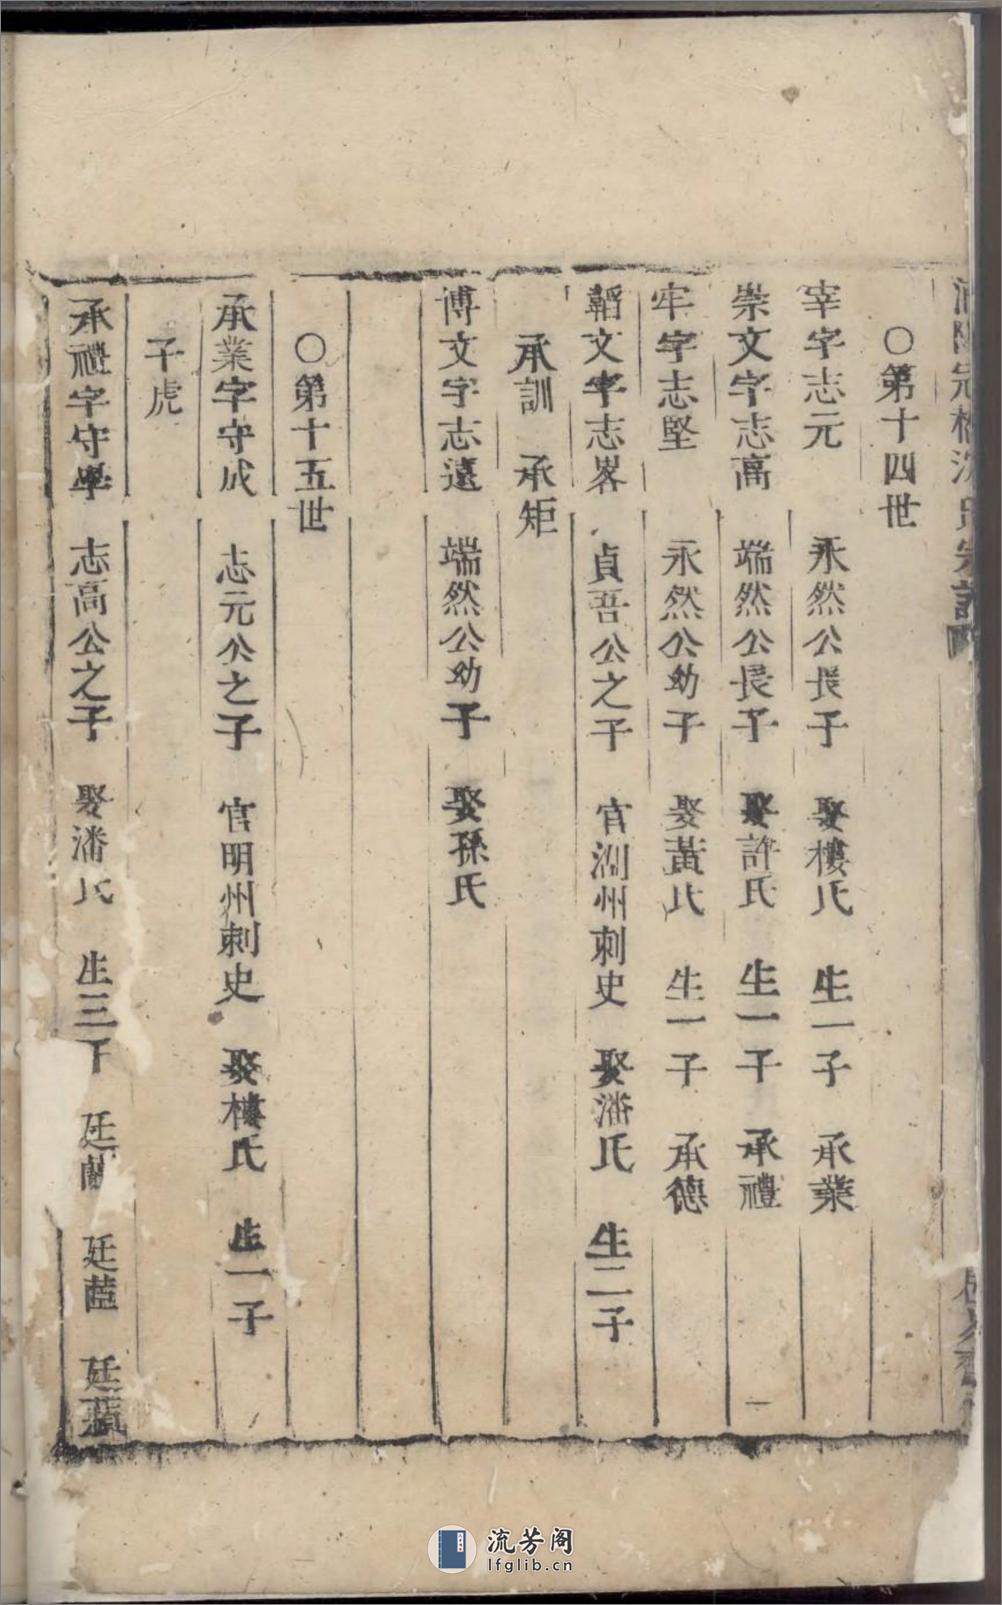 宗譜
○第十四世
宰字志元 永然公長子 娶樓氏 生一子 承業
崇文字志高 端然公長子 娶許氏 生一子 承禮
牢字志堅 永然公幼子 娶黃氏 生一子 承德
韜文字志畧 貞吾公之子 官潤州刺史 娶潘氏 生二子
承訓 承矩
博文字志遠 端然公幼子 娶孫氏
○第十五世
承業字守成 志元公之子 官明州刺史 娶樓氏 生一子
子虎
承禮字守學 志高公之子 娶潘氏 生三子 廷蘭 廷 廷
流芳阁
lfglib.cn